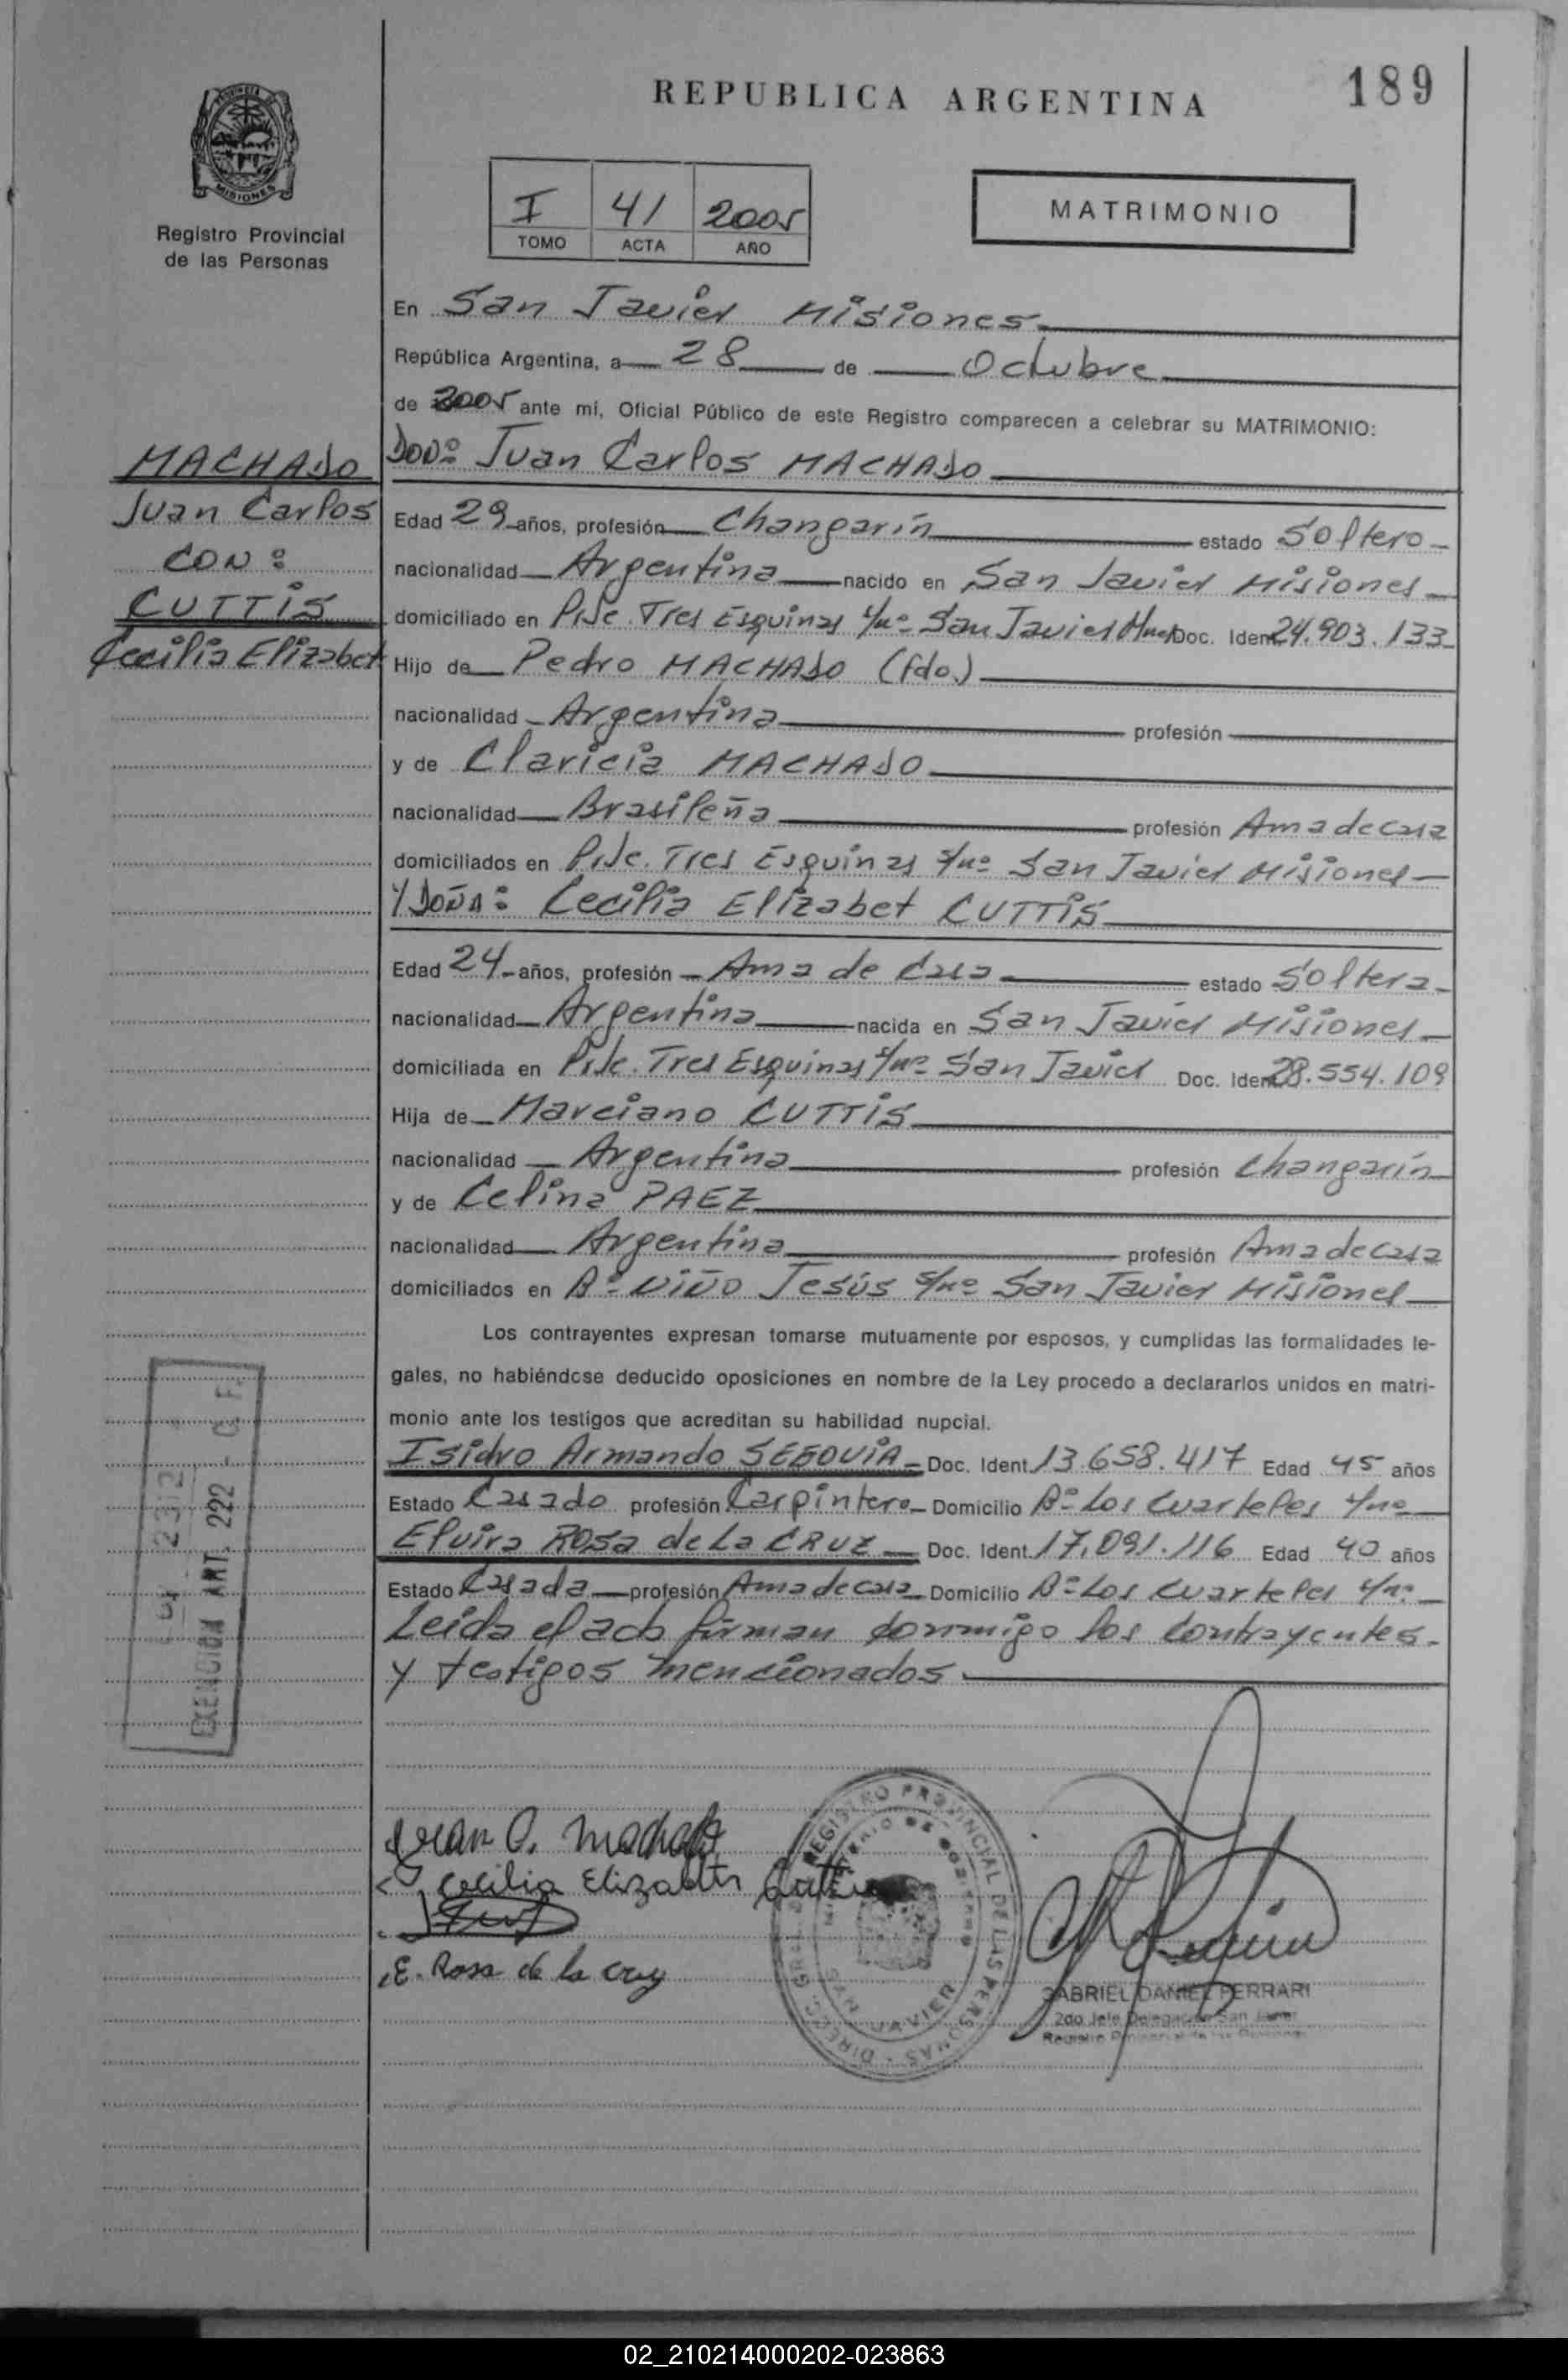 REPUBLICA ARGENTINA
189
MISIONES
Registro Provincial
de las Personas
I 41 2005
TOMO ACTA AÑO
MATRIMONIO
En San Javier Misiones
República Argentina, a 28 de Octubre
de 2005 ante mí, Oficial Público de este Registro comparecen a celebrar su MATRIMONIO:
MACHADO
Juan Carlos
CON:
CUTTIS
Cecilia Elizabet
DON: Juan Carlos MACHADO
Edad 29 años, profesión Changarín estado Soltero
nacionalidad Argentina nacido en San Javier Misiones
domiciliado en Pje. Tres Esquinas s/nº San Javier Mnes Doc. Ident 24.903.133
Hijo de Pedro MACHADO (fdo.)
nacionalidad Argentina profesión
y de Claricia MACHADO
nacionalidad Brasileña profesión Ama de casa
domiciliados en Pje. Tres Esquinas s/nº San Javier Misiones
Y DOÑA: Cecilia Elizabet CUTTIS
Edad 24 años, profesión Ama de Casa estado Soltera
nacionalidad Argentina nacida en San Javier Misiones
domiciliada en Pje. Tres Esquinas s/nº San Javier Doc. Ident 28.554.109
Hija de Marciano CUTTIS
nacionalidad Argentina profesión Changarín
y de Celina PAEZ
nacionalidad Argentina profesión Ama de casa
domiciliados en Bº Niño Jesús s/nº San Javier Misiones
Los contrayentes expresan tomarse mutuamente por esposos, y cumplidas las formalidades le-
gales, no habiéndose deducido oposiciones en nombre de la Ley procedo a declararlos unidos en matri-
monio ante los testigos que acreditan su habilidad nupcial.
Isidro Armando SEGOVIA Doc. Ident 13.658.417 Edad 45 años
Estado Casado profesión Carpintero Domicilio Bº Los Cuarteles s/nº
Elvira ROSA de La CRUZ Doc. Ident 17.091.116 Edad 40 años
Estado Casada profesión Ama de casa Domicilio Bº Los Cuarteles s/nº
Leída el acto firman conmigo los contrayentes
y testigos mencionados
EXENCION ART. 222 - C. F.
Juan C. Machado
Cecilia Elizabeth Cuttis
E. Rosa de la Cruz
DIRECC. GRAL. DEL REGISTRO PROVINCIAL DE LAS PERSONAS
MINISTERIO DE GOBIERNO
SAN JAVIER
GABRIEL DANIEL FERRARI
2do Jefe Delegación San Javier
Registro Provincial de las Personas
02_210214000202-023863